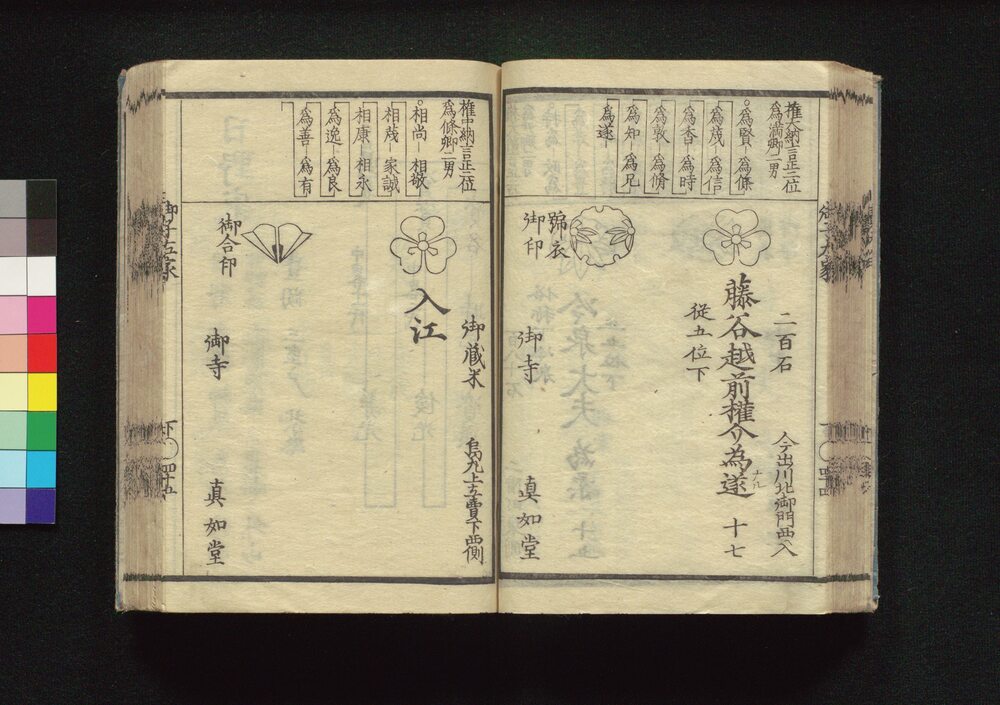 權大納言正二位
爲満卿二男
爲賢 爲條
爲茂 爲信
爲香 爲時
爲敦 爲脩
爲知 爲兄
爲遂
二百石
今出川北御門西入
藤谷越前權介為遂 十七
従五位下
号衣
御印
御寺
真如堂
權中納言正二位
爲條卿二男
相尚 相敬
相茂 家誠
相康 相永
爲逸 爲良
爲善 爲有
御蔵米
烏丸上立賣下西側
入江
御合印
御寺
真如堂
下
四十五